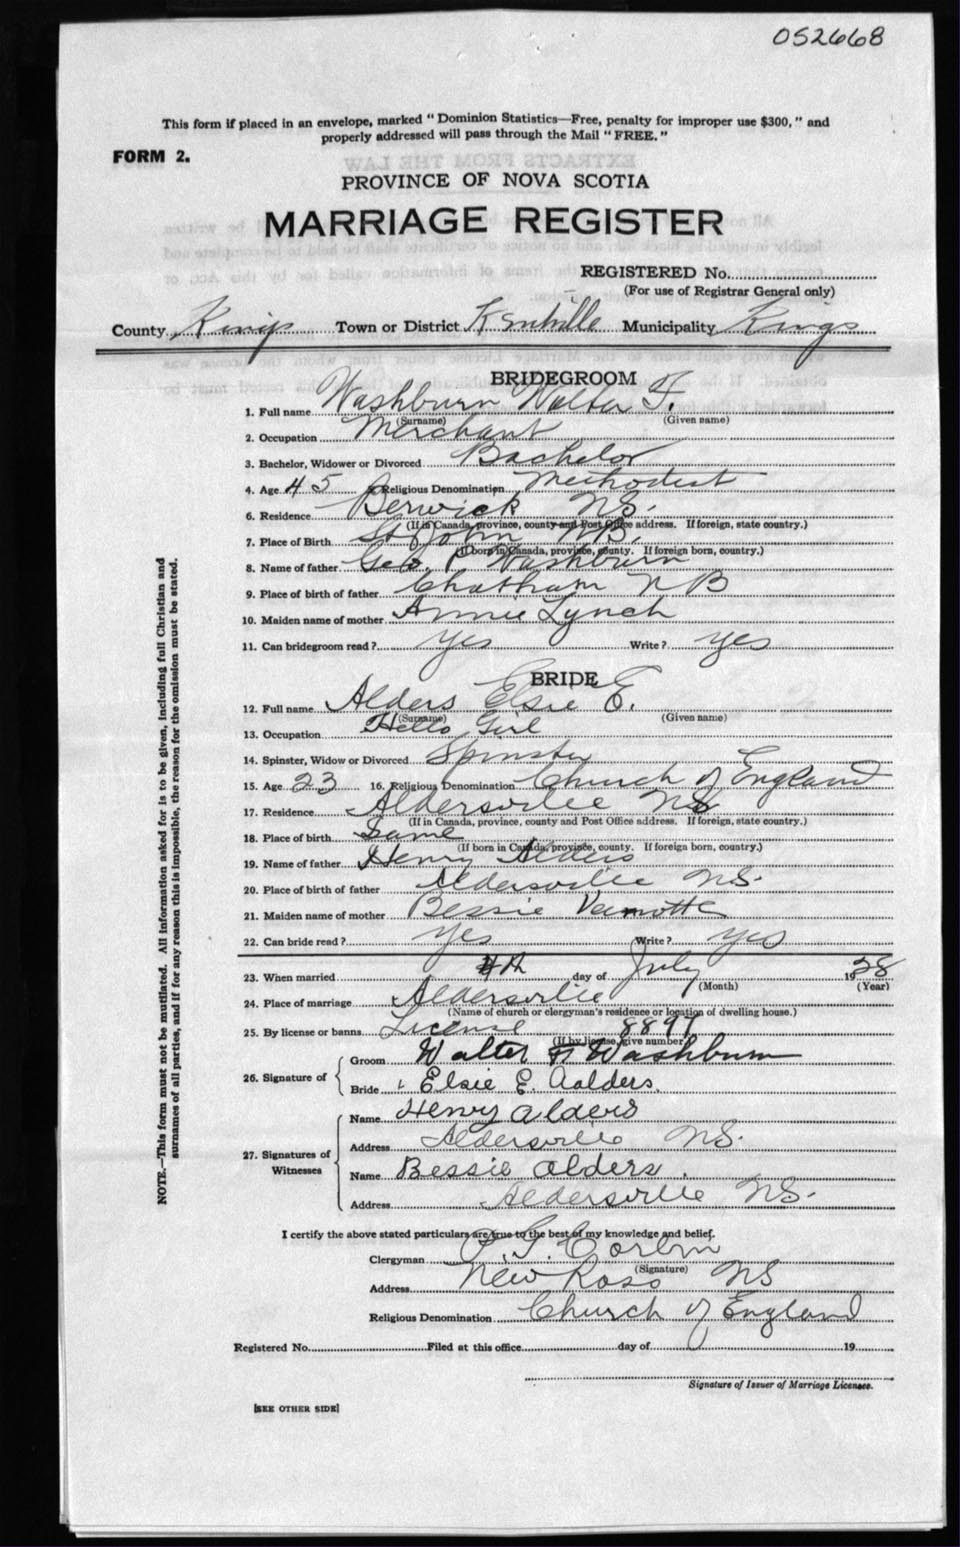 052668
This form if placed in an envelope, marked "Dominion Statistics—Free, penalty for improper use $300," and
properly addressed will pass through the Mail "FREE."
FORM 2.
PROVINCE OF NOVA SCOTIA
MARRIAGE REGISTER
REGISTERED No.
(For use of Registrar General only)
County Kings Town or District Kentville Municipality Kings
BRIDEGROOM
1. Full name Washburn Walter F.
(Surname) (Given name)
2. Occupation Merchant
3. Bachelor, Widower or Divorced Bachelor
4. Age 45 5. Religious Denomination Methodist
6. Residence Berwick NS.
(If in Canada, province, county and Post Office address. If foreign, state country.)
7. Place of Birth St John NB.
(If born in Canada, province, county. If foreign born, country.)
8. Name of father Geo. P Washburn
9. Place of birth of father Chatham N B
10. Maiden name of mother Annie Lynch
11. Can bridegroom read? yes Write? yes
BRIDE
12. Full name Alders Elsie E.
(Surname) (Given name)
13. Occupation Hello Girl
14. Spinster, Widow or Divorced Spinster
15. Age 23 16. Religious Denomination Church of England
17. Residence Aldersville NS
(If in Canada, province, county and Post Office address. If foreign, state country.)
18. Place of birth Same
(If born in Canada, province, county. If foreign born, country.)
19. Name of father Henry Alders
20. Place of birth of father Aldersville NS.
21. Maiden name of mother Bessie
22. Can bride read? yes Write? yes
23. When married 4th day of July 1928
(Month) (Year)
24. Place of marriage Aldersville
(Name of church or clergyman's residence or location of dwelling house.)
25. By license or banns License 8897
(If by license, give number)
26. Signature of Groom Walter F Washburn
Bride Elsie E. Aalders.
27. Signatures of Witnesses Name Henry Alders
Address Aldersville NS.
Name Bessie Alders.
Address Aldersville NS.
I certify the above stated particulars are true to the best of my knowledge and belief.
Clergyman
(Signature)
Address New Ross NS
Religious Denomination Church of England
Registered No. Filed at this office day of 19
Signature of Issuer of Marriage Licenses.
[SEE OTHER SIDE]
NOTE.—This form must not be mutilated. All information asked for is to be given, including full Christian and
surnames of all parties, and if for any reason this is impossible, the reason for the omission must be stated.